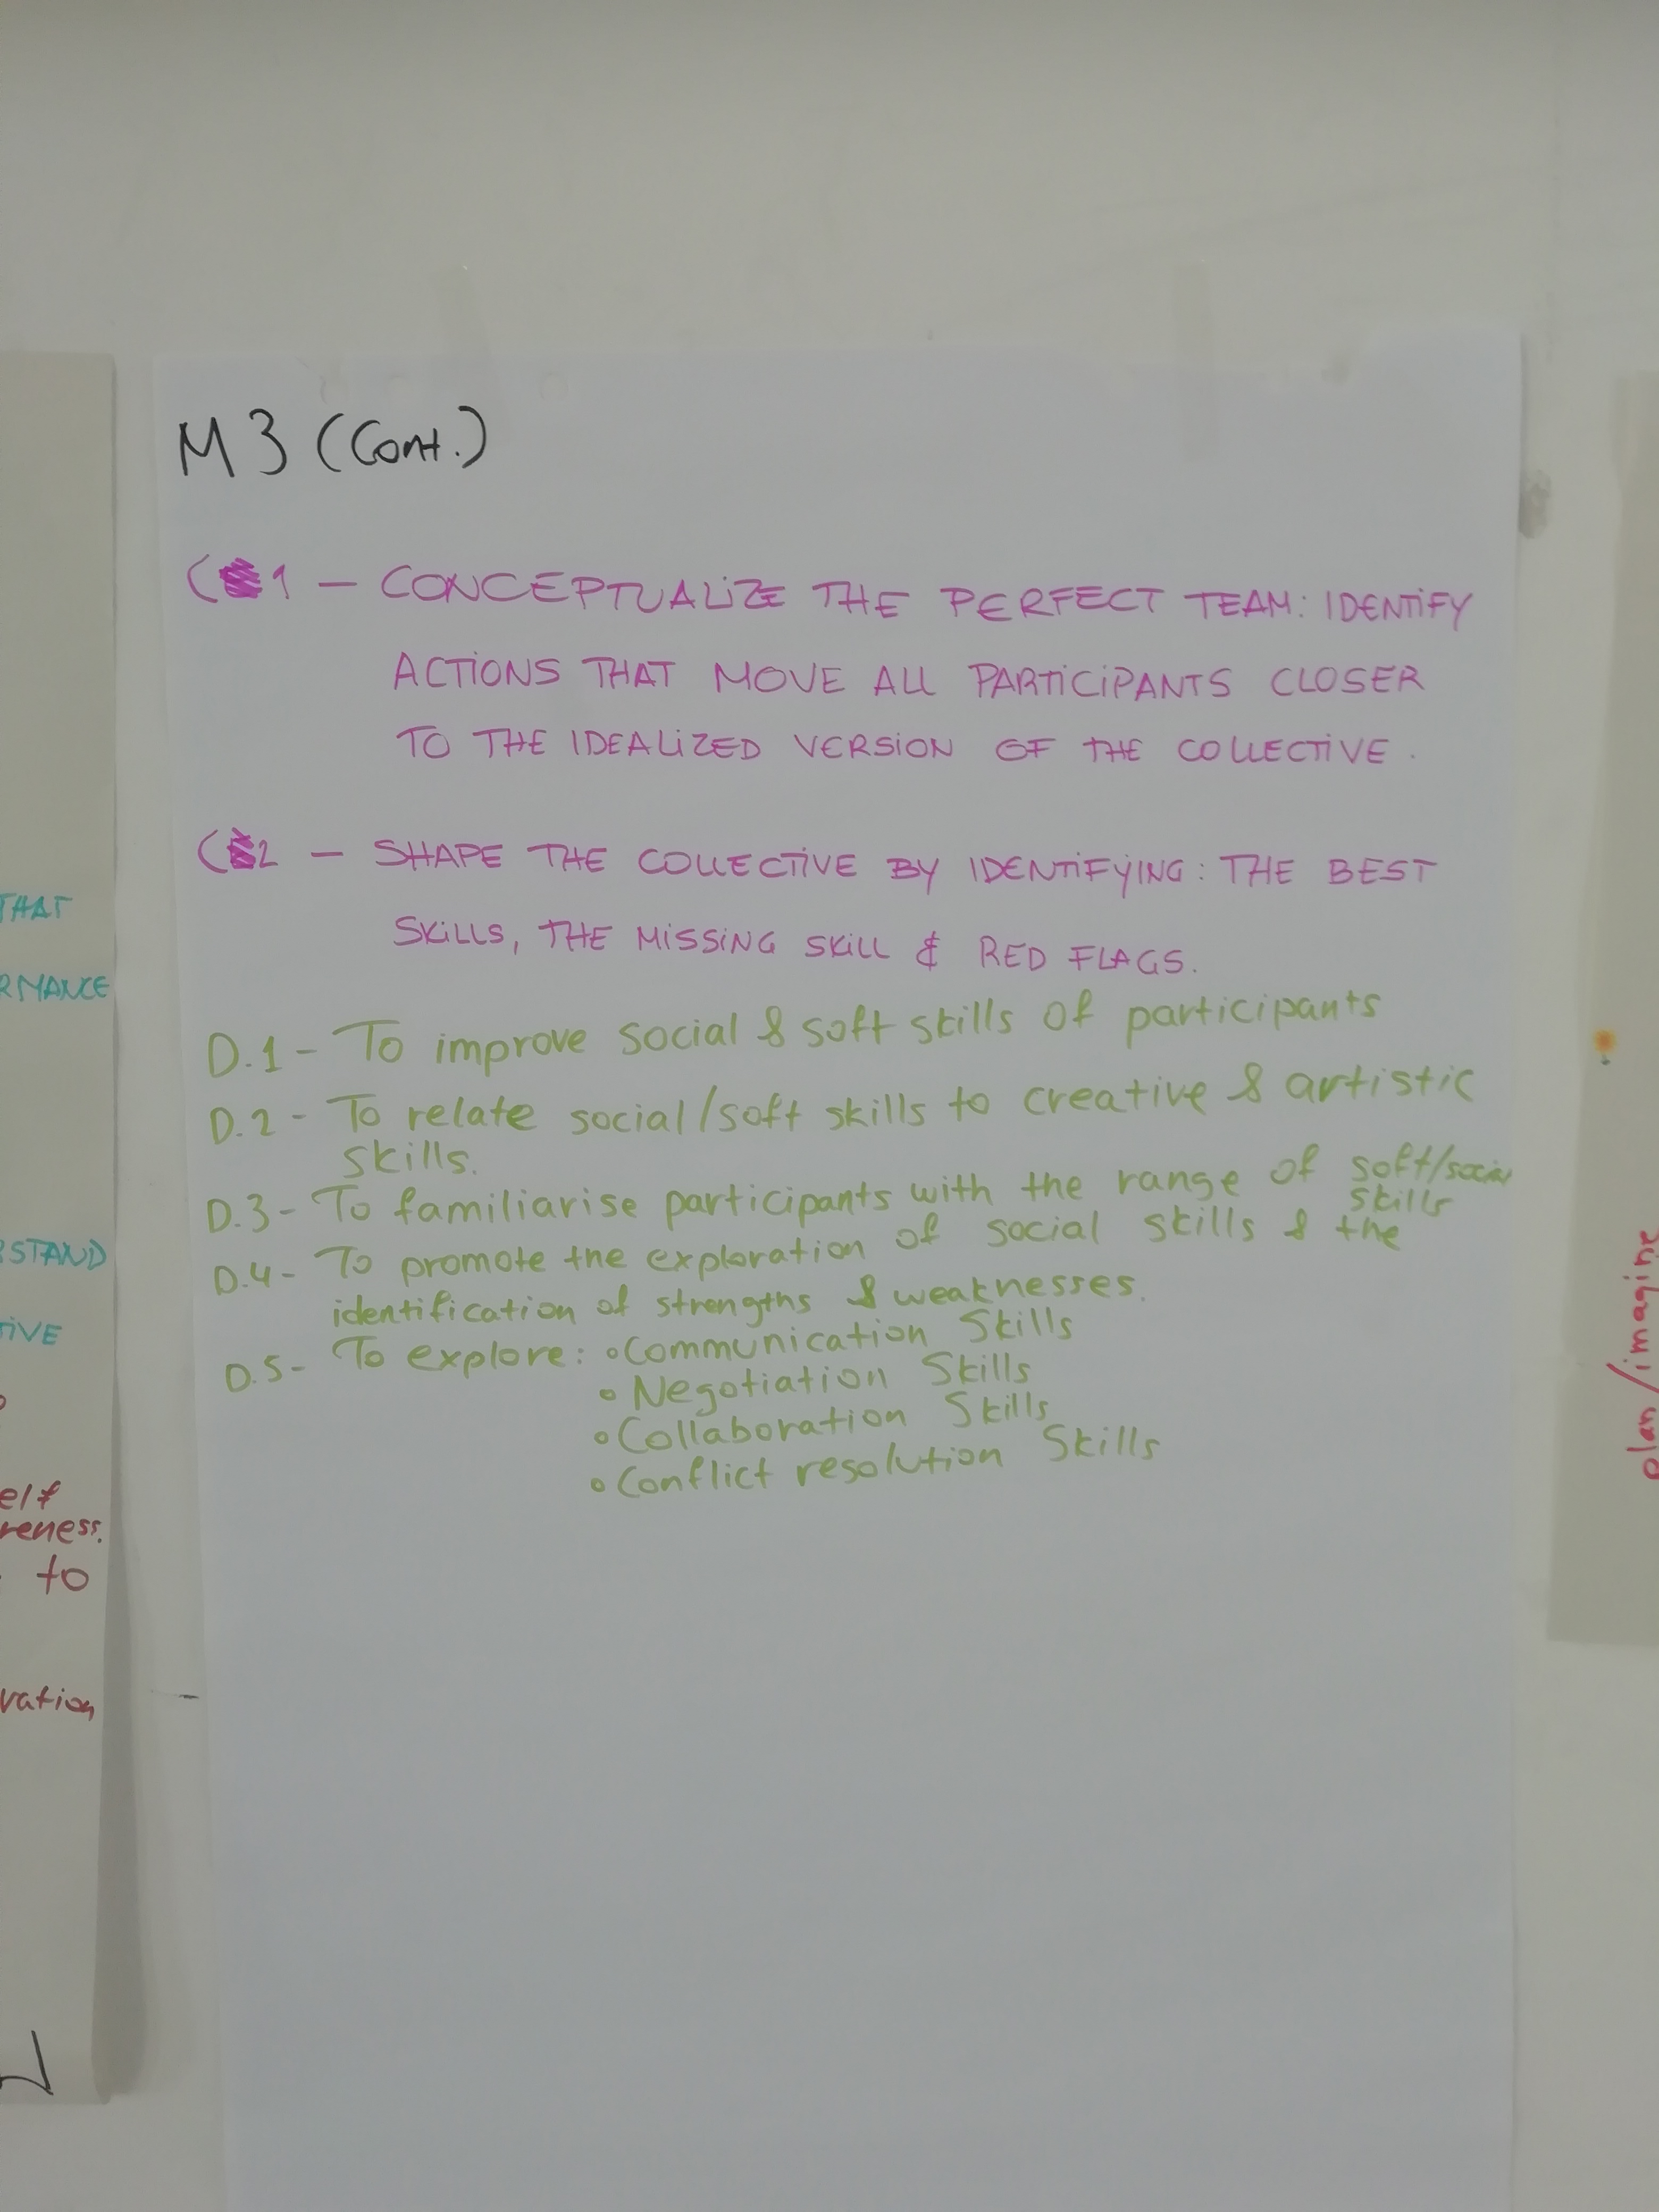 M3 (Cont.)
C1 – CONCEPTUALIZE THE PERFECT TEAM: IDENTIFY
ACTIONS THAT MOVE ALL PARTICIPANTS CLOSER
TO THE IDEALIZED VERSION OF THE COLLECTIVE.
C2 – SHAPE THE COLLECTIVE BY IDENTIFYING: THE BEST
SKILLS, THE MISSING SKILL & RED FLAGS.
D.1 - To improve social & soft skills of participants
D.2 - To relate social/soft skills to creative & artistic
skills.
D.3 - To familiarise participants with the range of soft/social
skills
D.4 - To promote the exploration of social skills & the
identification of strengths & weaknesses.
D.5 - To explore: • Communication Skills
• Negotiation Skills
• Collaboration Skills
• Conflict resolution Skills
THAT
RMANCE
RSTAND
TIVE
elf
reness.
to
vation
plan/imagine